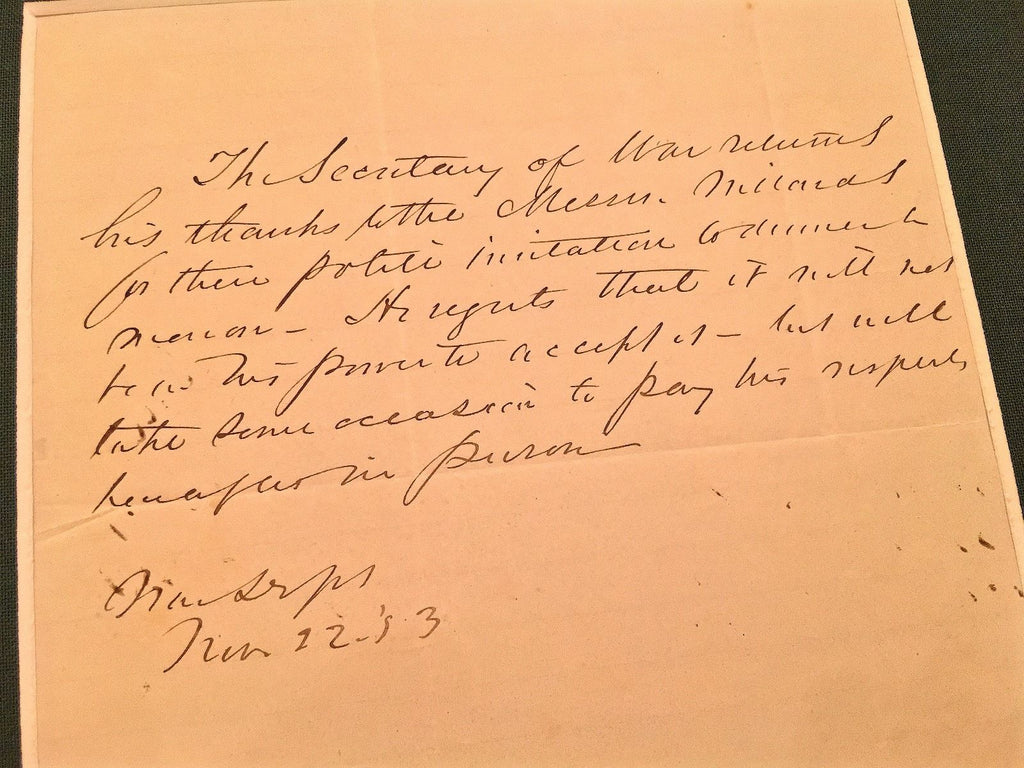 The Secretary of War returns
his thanks to the Messrs. Willards
for their polite invitation to dinner &
reunion – He regrets that it will not
be in his power to accept it – but will
take some occasion to pay his respects
hereafter in person
War Dept
Nov. 22. '53